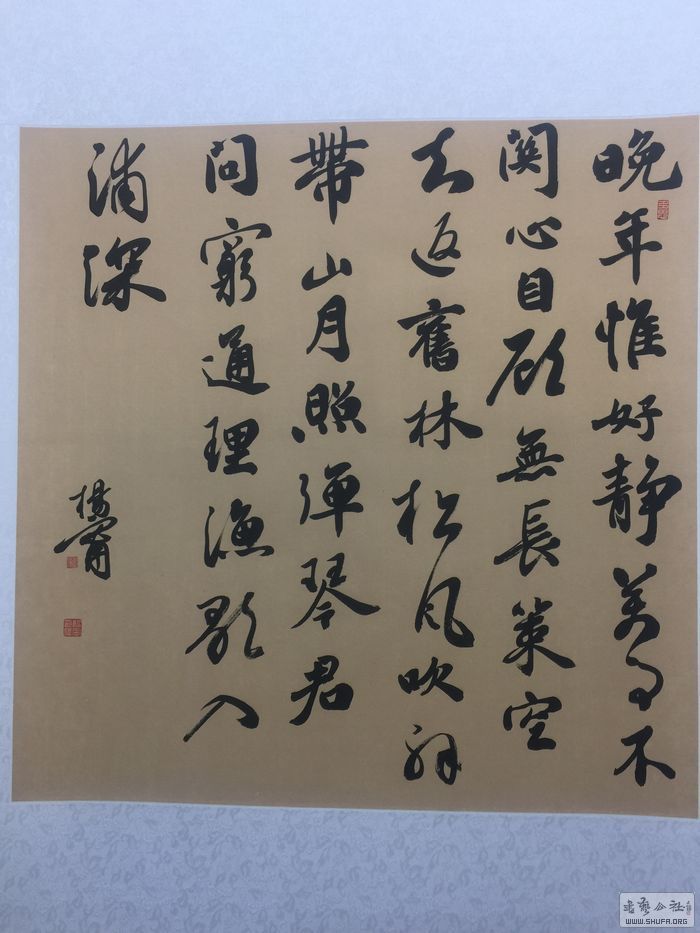 晚年惟好静萬事不
関心自顧無長策空
知返舊林松風吹解
帶山月照弹琴君
問窮通理漁歌入
浦深
書藝公社
WWW.SHUFA.ORG